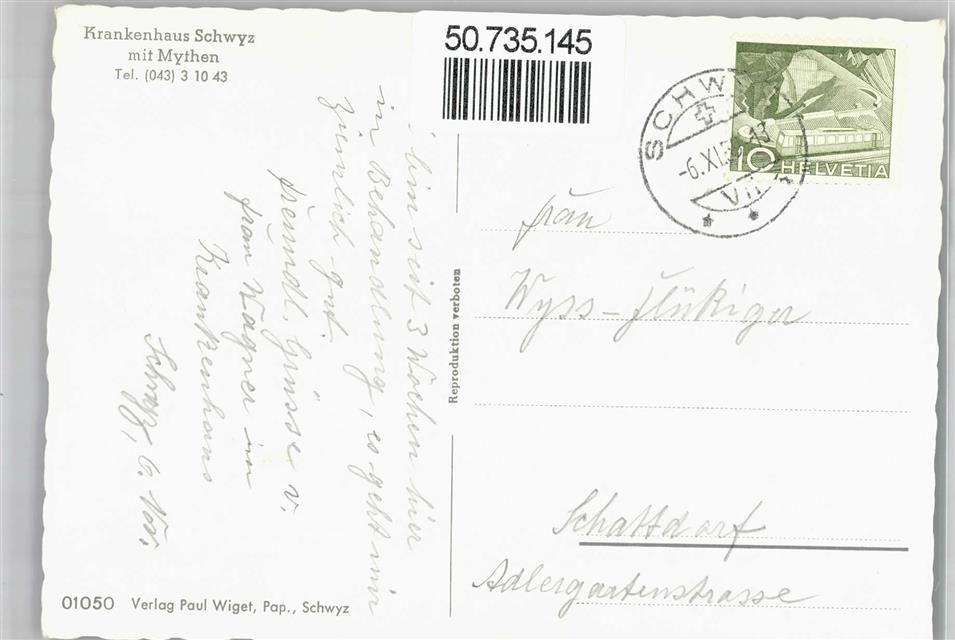 Krankenhaus Schwyz
mit Mythen
Tel. (043) 3 10 43
50.735.145
SCHWYZ
-6.XI.
VII
10 HELVETIA
bin seit 3 Wochen hier
in Behandlung, es geht mir
ziemlich gut.
freundl. Grüsse v.
frau Wagner im
Krankenhaus
Schwyz, 6. Nov.
Reproduktion verboten
frau
Wyss-Flükiger
Schattdorf
Adlergartenstrasse
01050 Verlag Paul Wiget, Pap., Schwyz